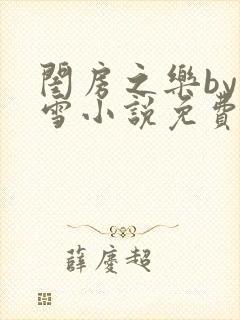 閨房之樂by
雪小說免費
薛慶超